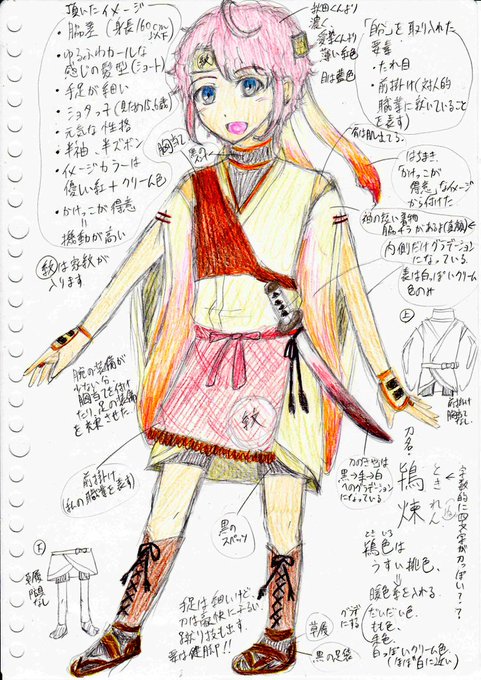 頂いたイメージ
・脇差(身長160cm以下)
・ゆるふわカールな
感じの髪型(ショート)
・手足が細い
・ショタっ子(見ため15、6歳)
・元気な性格
・半袖、半ズボン
・イメージカラーは
優しい紅+クリーム色
・かけっこが得意
||
機動が高い
紋は家紋が
入ります
胸当て
黒の
紋
秋田くんより
濃く、
薄い紅色
目は藍色
「自分」を取り入れた
要素
・たれ目
・前掛け(対人的
職業に就いていること
を表す)
前は肌出てる。
はちまき
「かけっこが
得意」なイメージ
から付けた
袖の長い着物
内側だけグラデーションに
なっている。
表は白っぽいクリーム
色のみ
上
前掛け
胸当て
なし
腕の装備が
少ないから
胸当てを付け
たり、足の装備
を充実させた。
前掛け
(私の職業を表す)
紋
刀のさやは
黒→赤→白
へのグラデーション
になっている。
刀名
鴇
煉
ときれん
ときいろ
鴇色は
うすい桃色、
暖色系を入れる。
だいだい色、
もも色、
朱色、
白っぽいクリーム色
(ほぼ白に近い)
グラデ
にする
黒の
スパッツ
下
草履
足袋
なし
手足は細いけど、
刀は豪快にふるい
蹴り技も出す。
要は健脚!!
草履
黒の足袋